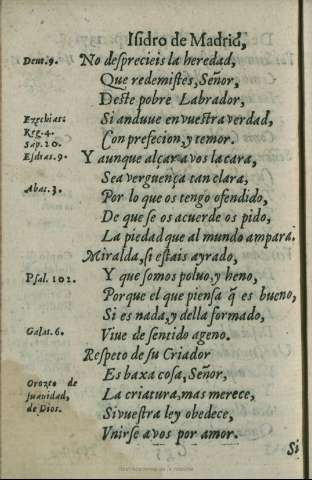 Isidro de Madrid,
Deut. 9. No desprecieis la heredad,
Que redemistes, Señor,
Deste pobre Labrador,
Ezechias: Si anduue en vuestra verdad,
Reg. 4. Con prefecion, y temor.
Sap. 20.
Esdras. 9. Y aunque alçar a vos la cara,
Sea verguença tan clara,
Abas. 3. Por lo que os tengo ofendido,
De que se os acuerde os pido,
La piedad que al mundo ampara.
Miralda, si estais ayrado,
Psal. 102. Y que somos poluo, y heno,
Porque el que piensa q̃ es bueno,
Si es nada, y della formado,
Galat. 6. Viue de sentido ageno.
Respeto de su Criador
Es baxa cosa, Señor,
Orozco de La criatura, mas merece,
suauidad, Si vuestra ley obedece,
de Dios. Vnirse a vos por amor.
Si